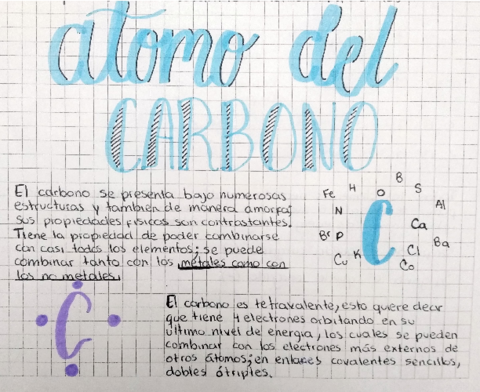 átomo del
CARBONO
El carbono se presenta bajo numerosas
estructuras y también de manera amorfa;
sus propiedades físicas son contrastantes.
Tiene la propiedad de poder combinarse
con casi todos los elementos; se puede
combinar tanto con los metales como con
los no metales.
B
Fe H O S
N C Al
Br P Ca
Cu K Cl Ba
Co
C
El carbono es tetravalente, esto quiere decir
que tiene 4 electrones orbitando en su
último nivel de energía, los cuales se pueden
combinar con los electrones más externos de
otros átomos; en enlaces covalentes sencillos,
dobles ó triples.